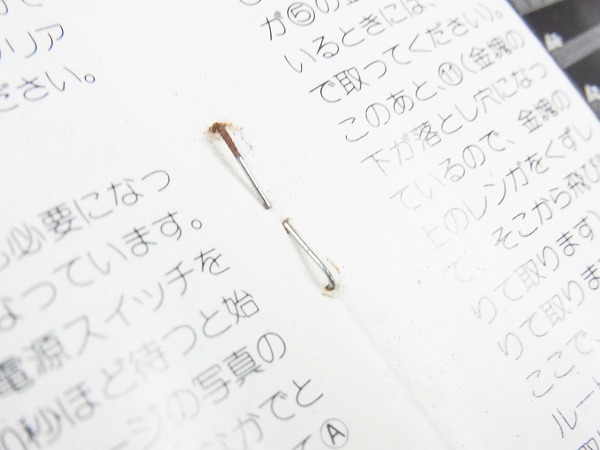 クリア
ださい。
も必要になっ
なっています。
電源スイッチを
0秒ほど待つと始
ージの写真の
なかでと
てⒶ
が⑤の金
いるときには、
で取ってください)。
このあと、⑪(金塊の
下が落とし穴になっ
ているので、金塊の
上のレンガをくずし
て、そこから飛び
りて取ります)
りて取りま
ここで、
ルー